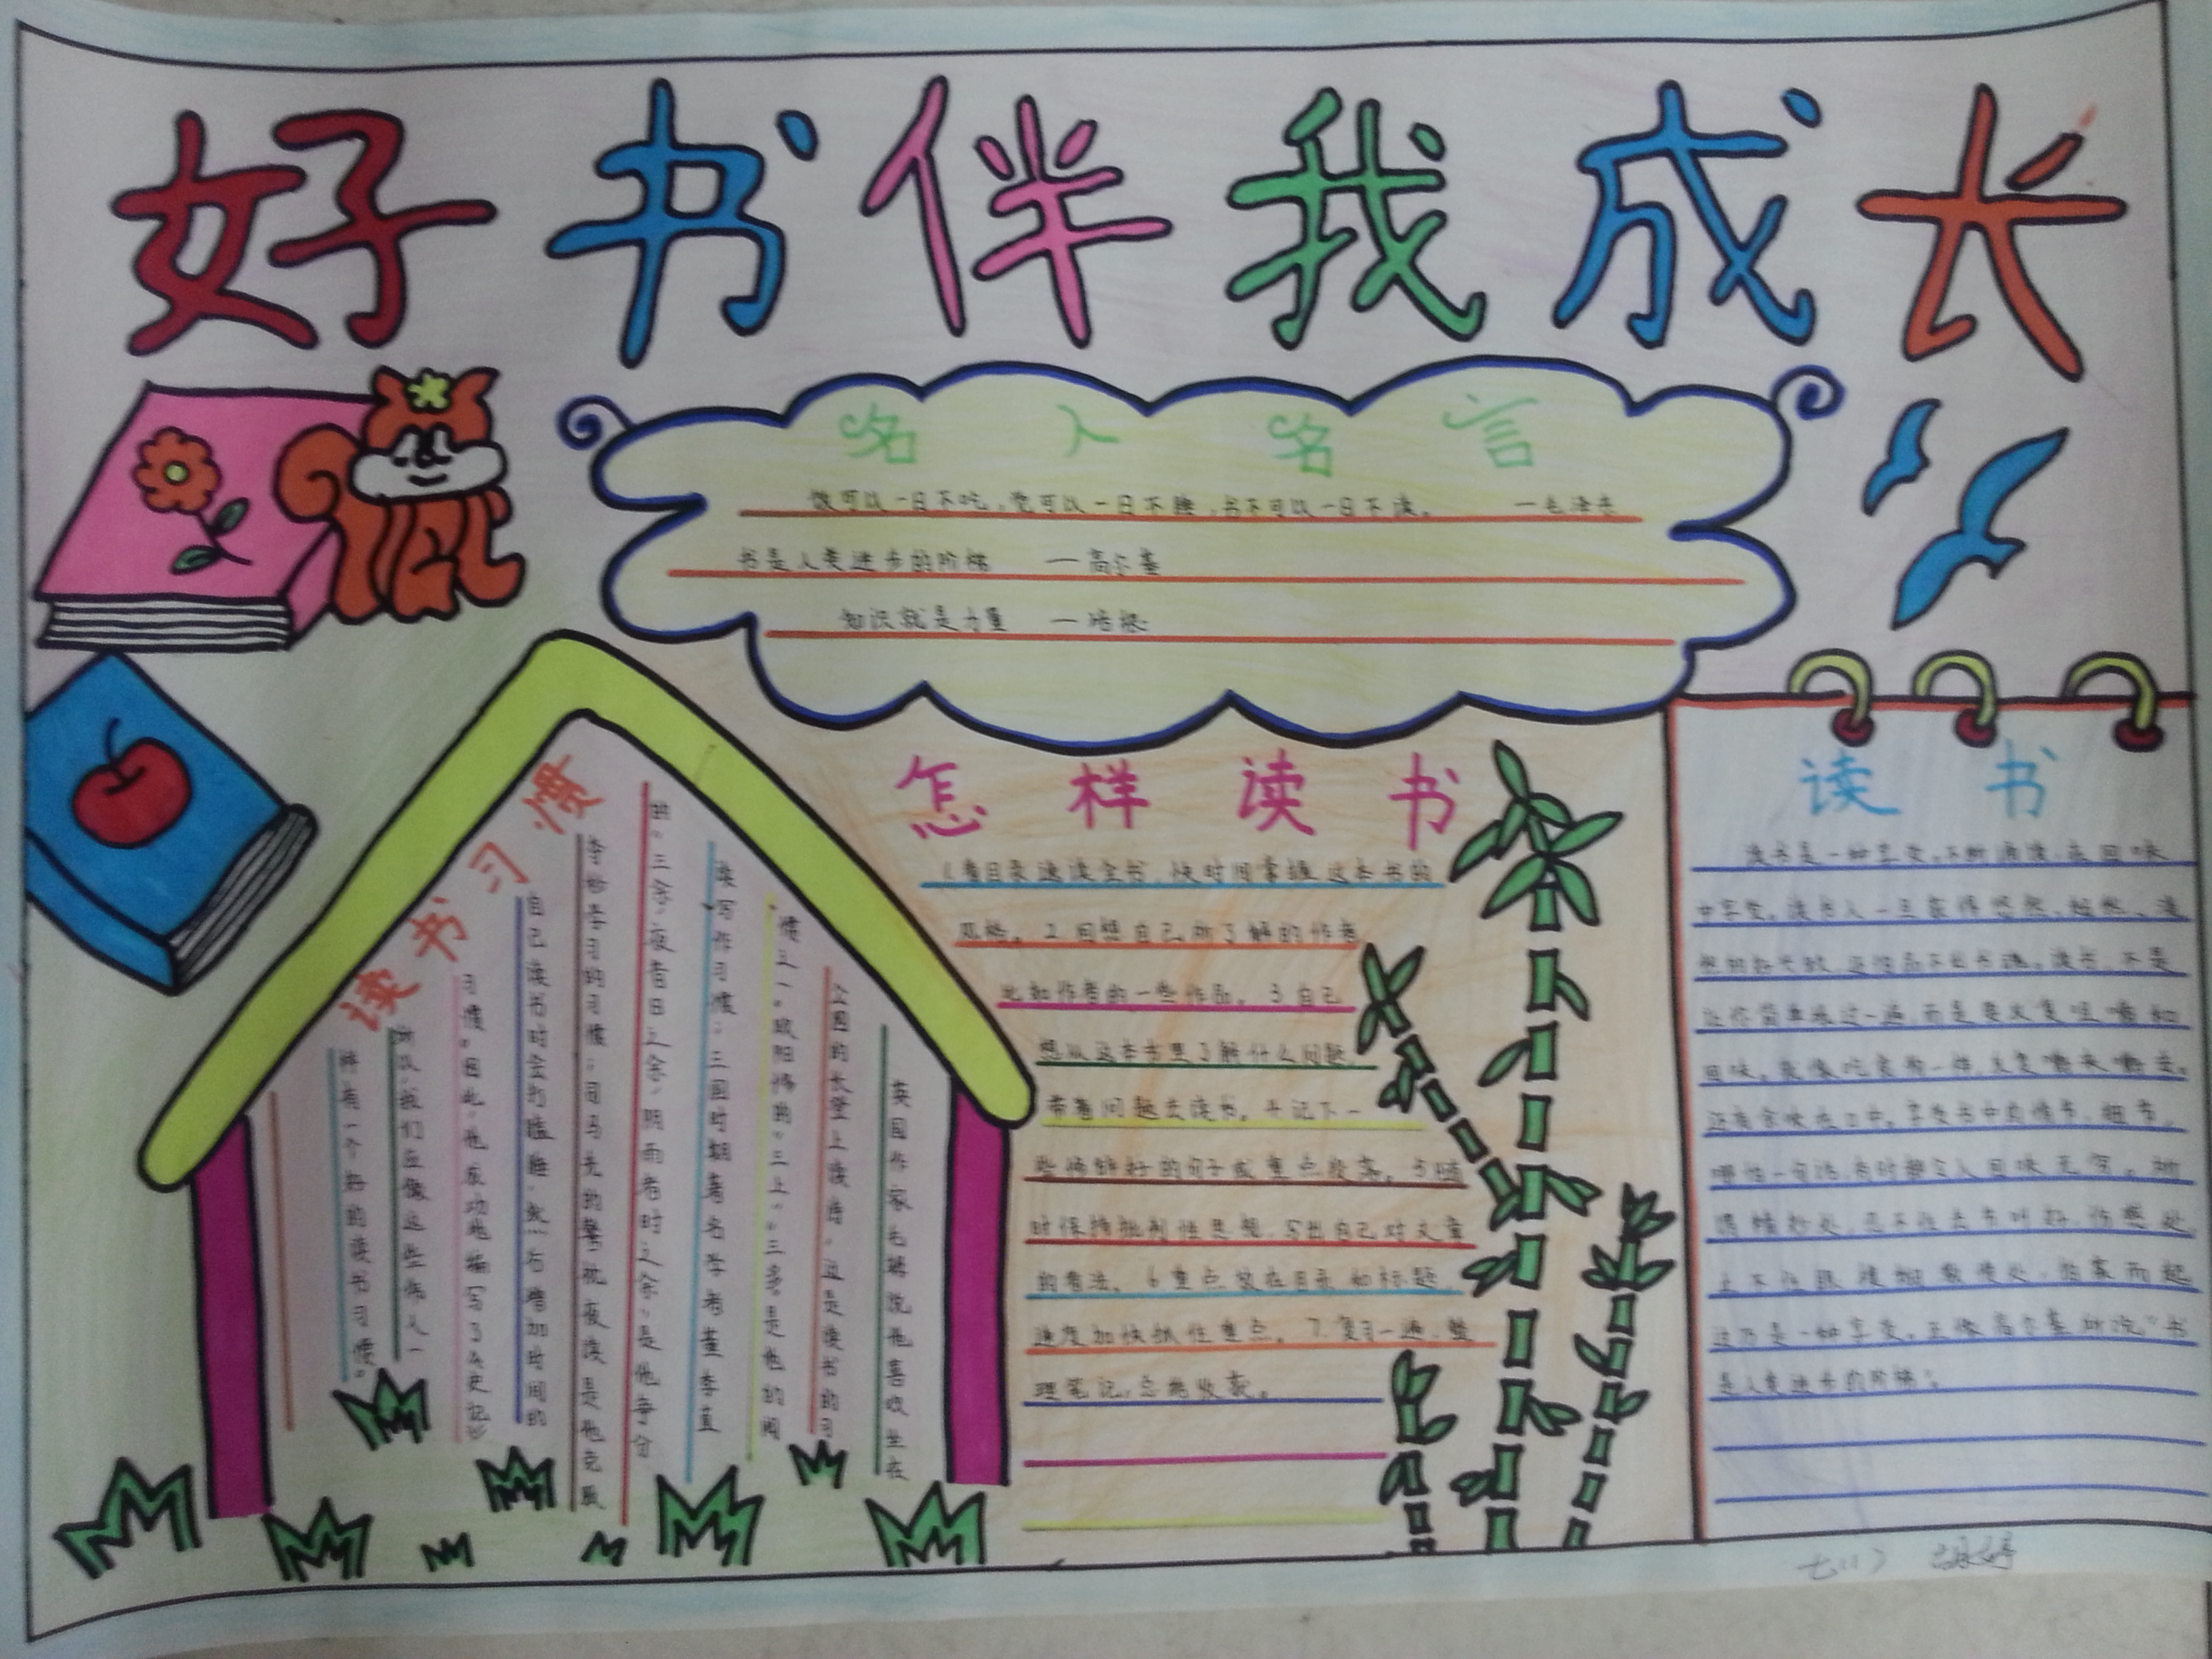 好书伴我成长
名人名言
饭可以一日不吃,觉可以一日不睡,书不可以一日不读。 —毛泽东
书是人类进步的阶梯 —高尔基
知识就是力量 —培根
读书习惯
英国作家毛姆说他喜欢坐在
公园的长登上读诗,这是读书的习
惯之一。欧阳修的“三上”“三多”是他的阅
读写作习惯;三国时期著名学者董李直
的“三余,夜者日之余,阴雨者时之余”是他争分
夺秒学习的习惯;司马光的警枕夜读是他克服
自己读书时会打瞌睡,然后增加时间的
习惯。因此,他成功地编写了《史记》
所以,我们应像这些伟人一
样有一个好的读书习惯。
怎样读书
1看目录速读全书,快时间掌握这本书的
风格。2.回想自己所了解的作者
比如作者的一些作品。3.自己
想从这本书里了解什么问题,
带着问题去读书。4记下一
些你特好的句子或重点段落。5随
时保持批判性思想,写出自己对文章
的看法。6重点放在目录如标题,
速度加快抓住重点。7.复习一遍,整
理笔记,总结收获。
读书
读书是一种享受,不断诵读,在回味
中享受。读书人一旦获得悠然、
读书,不是
让你简单读过一遍,而是要反复咀嚼和
回味。就像吃食物一样,反复嚼来嚼去。
还有余味在口中。享受书中的情节、细节,
哪怕一句话,有时都令人回味无穷。
精彩处,忍不住击节叫好,伤感处,
这乃是一种享受。正像高尔基所说“书
是人类进步的阶梯”。
七(1) 胡婷